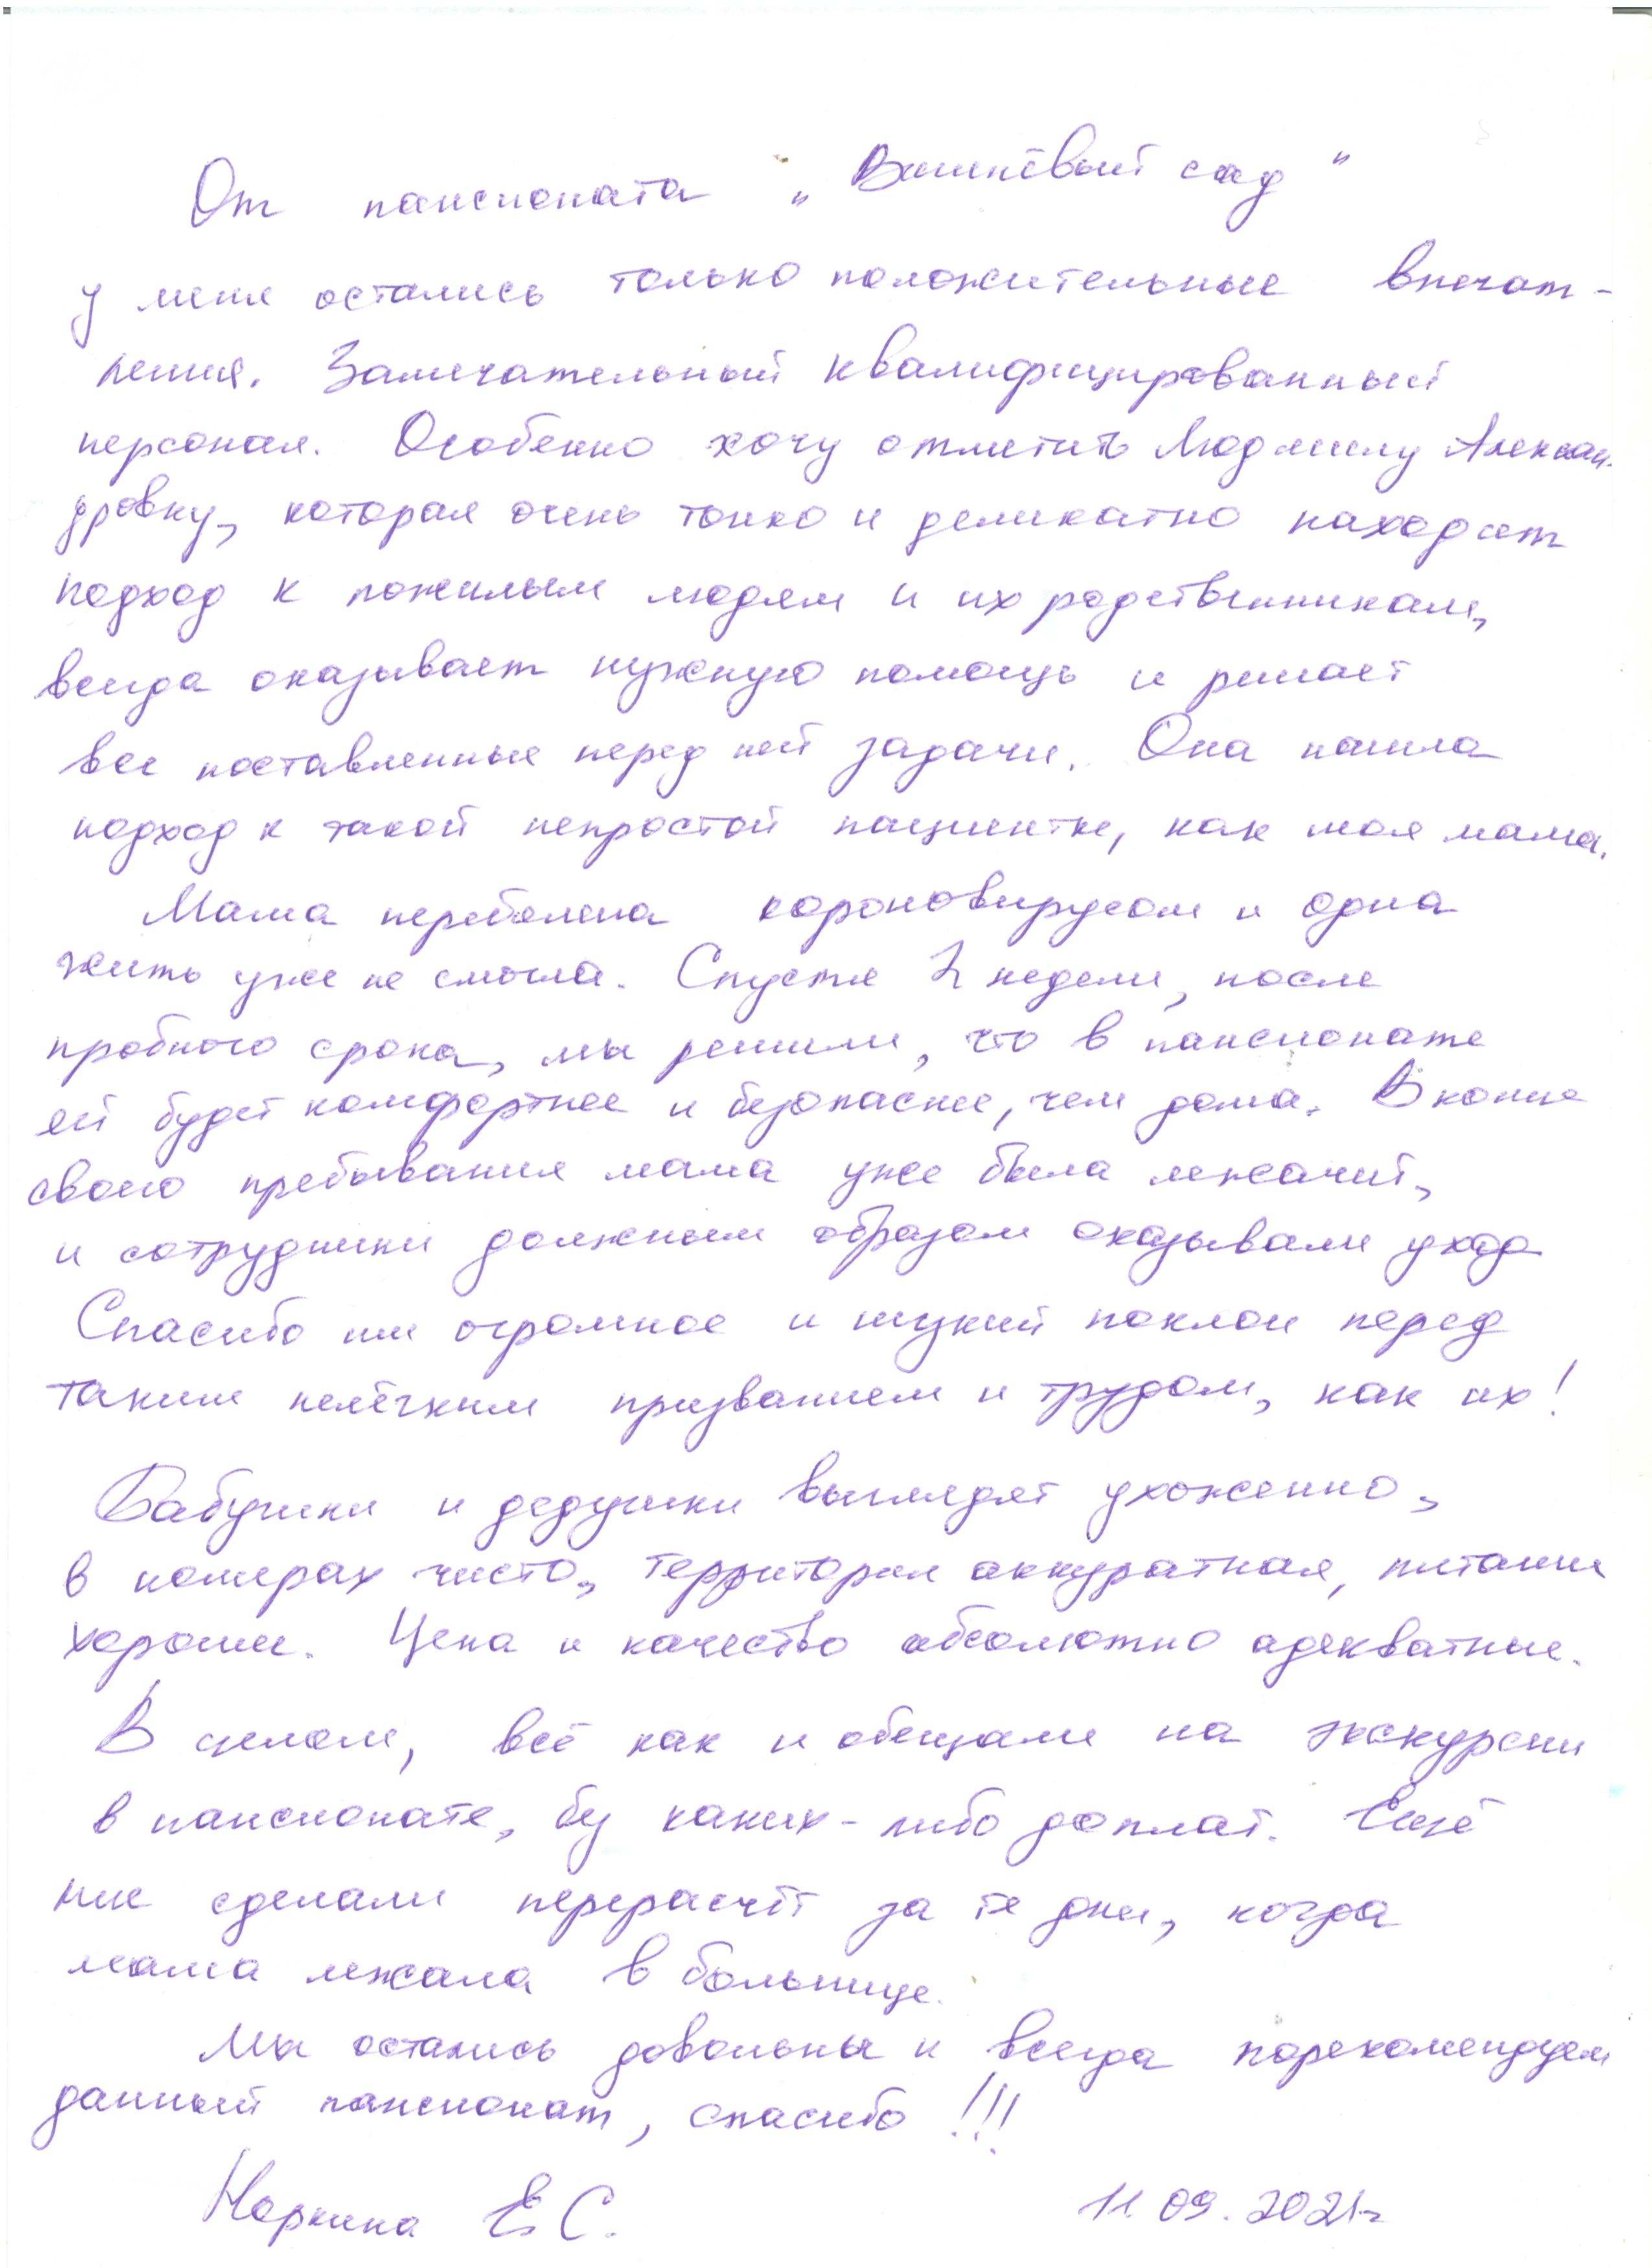 От пансионата „Вишнёвый сад"
у меня остались только положительные впечат-
ления. Замечательный квалифицированный
персонал. Особенно хочу отметить Людмилу Алексан-
дровну, которая очень тонко и деликатно находит
подход к пожилым людям и их родственникам,
всегда оказывает нужную помощь и решает
все поставленные перед ней задачи. Она нашла
подход к такой непростой пациентке, как моя мама.
Мама переболела короновирусом и одна
жить уже не смогла. Спустя 2 недели, после
пробного срока, мы решили, что в пансионате
ей будет комфортнее и безопаснее, чем дома. В конце
своего пребывания мама уже была лежачий,
и сотрудники должным образом оказывали уход
Спасибо им огромное и низкий поклон перед
таким нелёгким призванием и трудом, как их!
Бабушки и дедушки выглядят ухоженно,
в номерах чисто, территория аккуратная, питание
хорошее. Цена и качество абсолютно адекватные.
В целом, всё как и обещали на экскурсии
в пансионате, без каких-либо доплат. Ещё
мне сделали перерасчёт за те дни, когда
мама лежала в больнице.
Мы остались довольны и всегда порекомендуем
данный пансионат, спасибо!!!
Норкина Е.С. 11.09.2021г